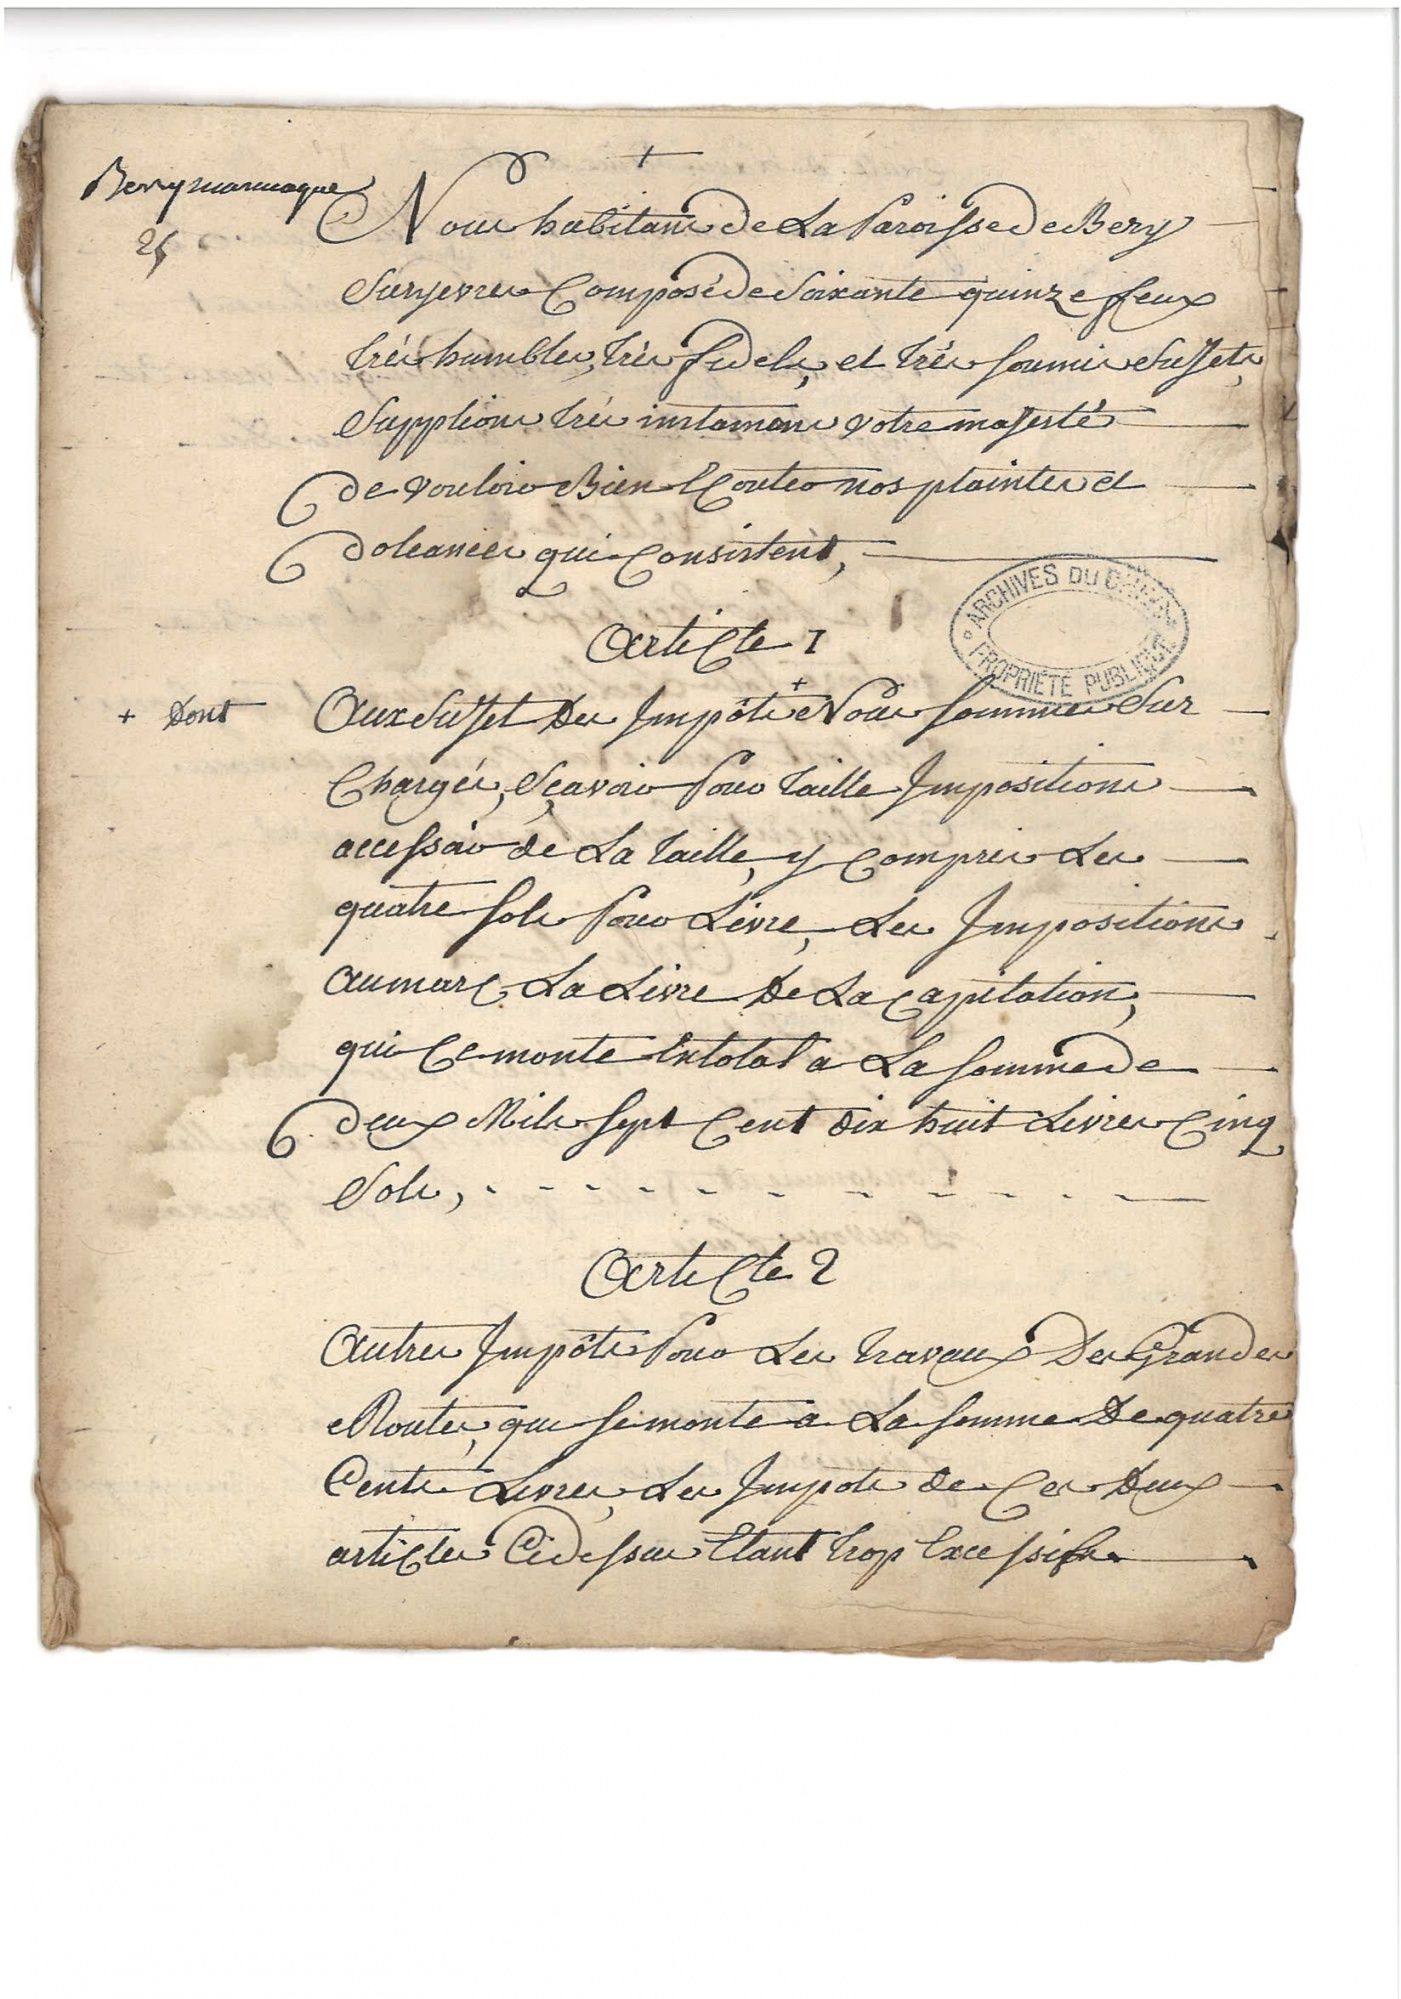 +
Berrymarmagne
25
Nous habitans de La Paroisse de Bery
Suryevres Composé de Soixante quinze feux
trés humbles, trés fidels, et trés soumis Sujets,
Supplions trés instamens votre majesté
de vouloir Bien Ecouter nos plaintes et
doleances qui Consistent,
ARCHIVES DU CHER
PROPRIÉTÉ PUBLIQUE
Article 1
+ Dont
Aux Sujet Des Impôts + Nous sommes Sur
Chargés, Sçavoir Pour taille Impositions
accessoir de La taille, y compris Les
quatre sols Pour Livre, Les Impositions
au marc La Livre De La Capitation,
qui Ce monte En total a La somme de
deux Mils sept Cent dix huit Livres Cinq
Sols,
Article 2
Autres Impôts Pour Les travaux Des Grandes
Routes, qui se monte a La somme De quatre
Cents Livres, Les Impots de Ces Deux
articles Cidessus Etant trop Excessifs.